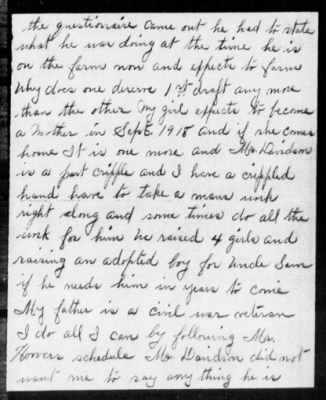 the questionaire came out he had to state
what he was doing at the time he is
on the farm now and expects to farm
Why does one deserve 1st draft any more
than the other My girl expects to become
a Mother in Sept. 1918 and if she comes
home It is one more and Mr. Davidson
is a part cripple and I have a crippled
hand have to take a mans work
right along and some times do all the
work for him we raised 4 girls and
raising an adopted boy for Uncle Sam
if he needs him in years to come
My father is a civil war veteran
I do all I can by following Mr.
Hoovers schedule Mr Davidson did not
want me to say any thing he is